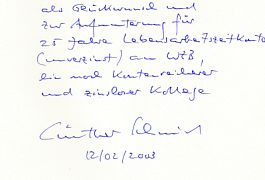 als Glückwunsch und
zur Aufmunterung für
25 Jahre Lebensarbeitszeitkonto
(unverzinst) am WZB,
ein noch Kontenreicherer
und zinsloser Kollege
Günther Schmid
12/02/2003